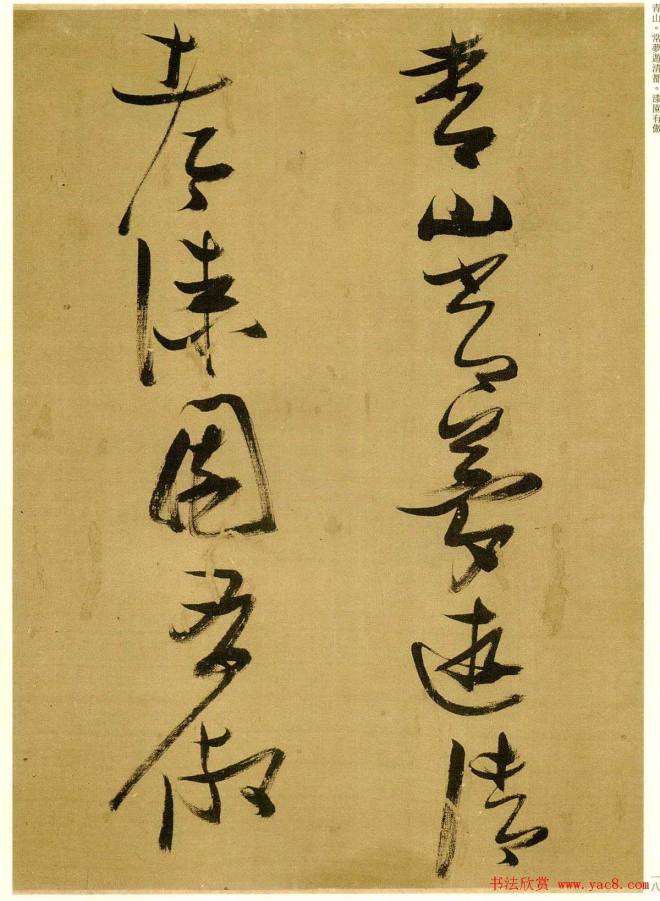 青山。常夢遊清都。漆園有傲
青山常夢遊清
都漆園有傲
一八
书法欣赏 www.yac8.com